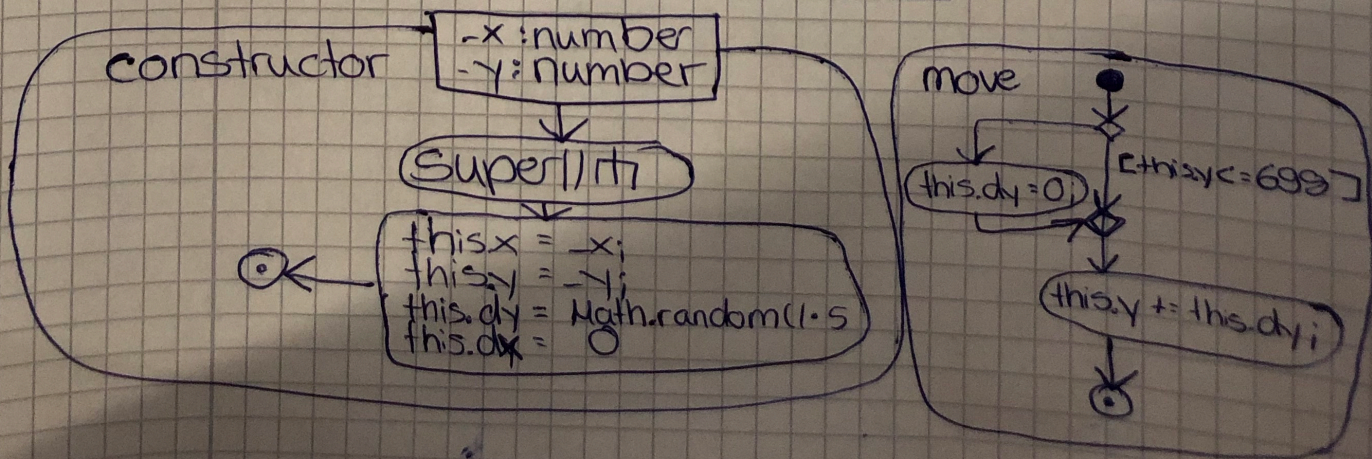 constructor
_x:number
_y:number
super();
this.x = _x;
this.y = _y;
this.dy = Math.random()·5
this.dx = 0
move
[this.y<=699]
this.dy=0;
this.y += this.dy;